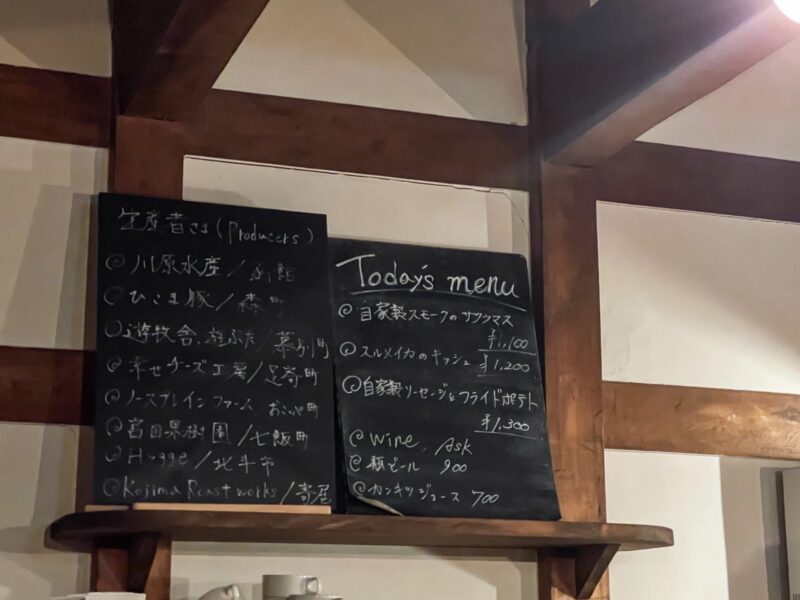 生産者さま (Producers)
@ 川原水産/函館
@ ひこま豚/森町
@ 遊牧舎, 遊ぶた/幕別町
@ 幸せチーズ工房/足寄町
@ ノースプレインファーム おこっぺ町
@ 宮田果樹園/七飯町
@ Hygge/北斗市
@ Kojima Roast works/寄居
Today's menu
@ 自家製スモークのサクラマス
¥1,100
@ スルメイカのキッシュ ¥1,200
@ 自家製ソーセージとフライドポテト
¥1,300
@ Wine, Ask
@ 瓶ビール 900
@ カンキツジュース 700